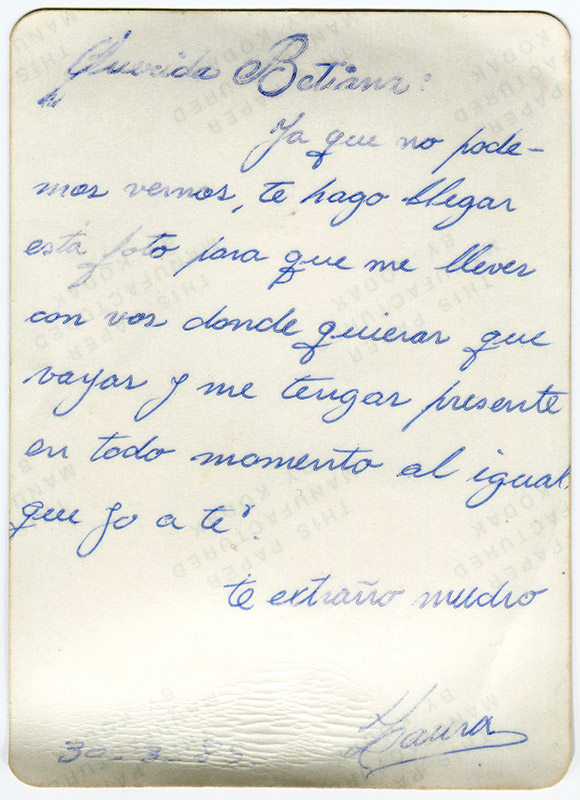 Querida Betiana:
Ya que no pode-
mos vernos, te hago llegar
está foto para que me lleves
con vos donde quieras que
vayas y me tengas presente
en todo momento al igual
que yo a te´.
te extraño mucho
Laura
30-3-83.
THIS PAPER
MANUFACTURED
BY KODAK